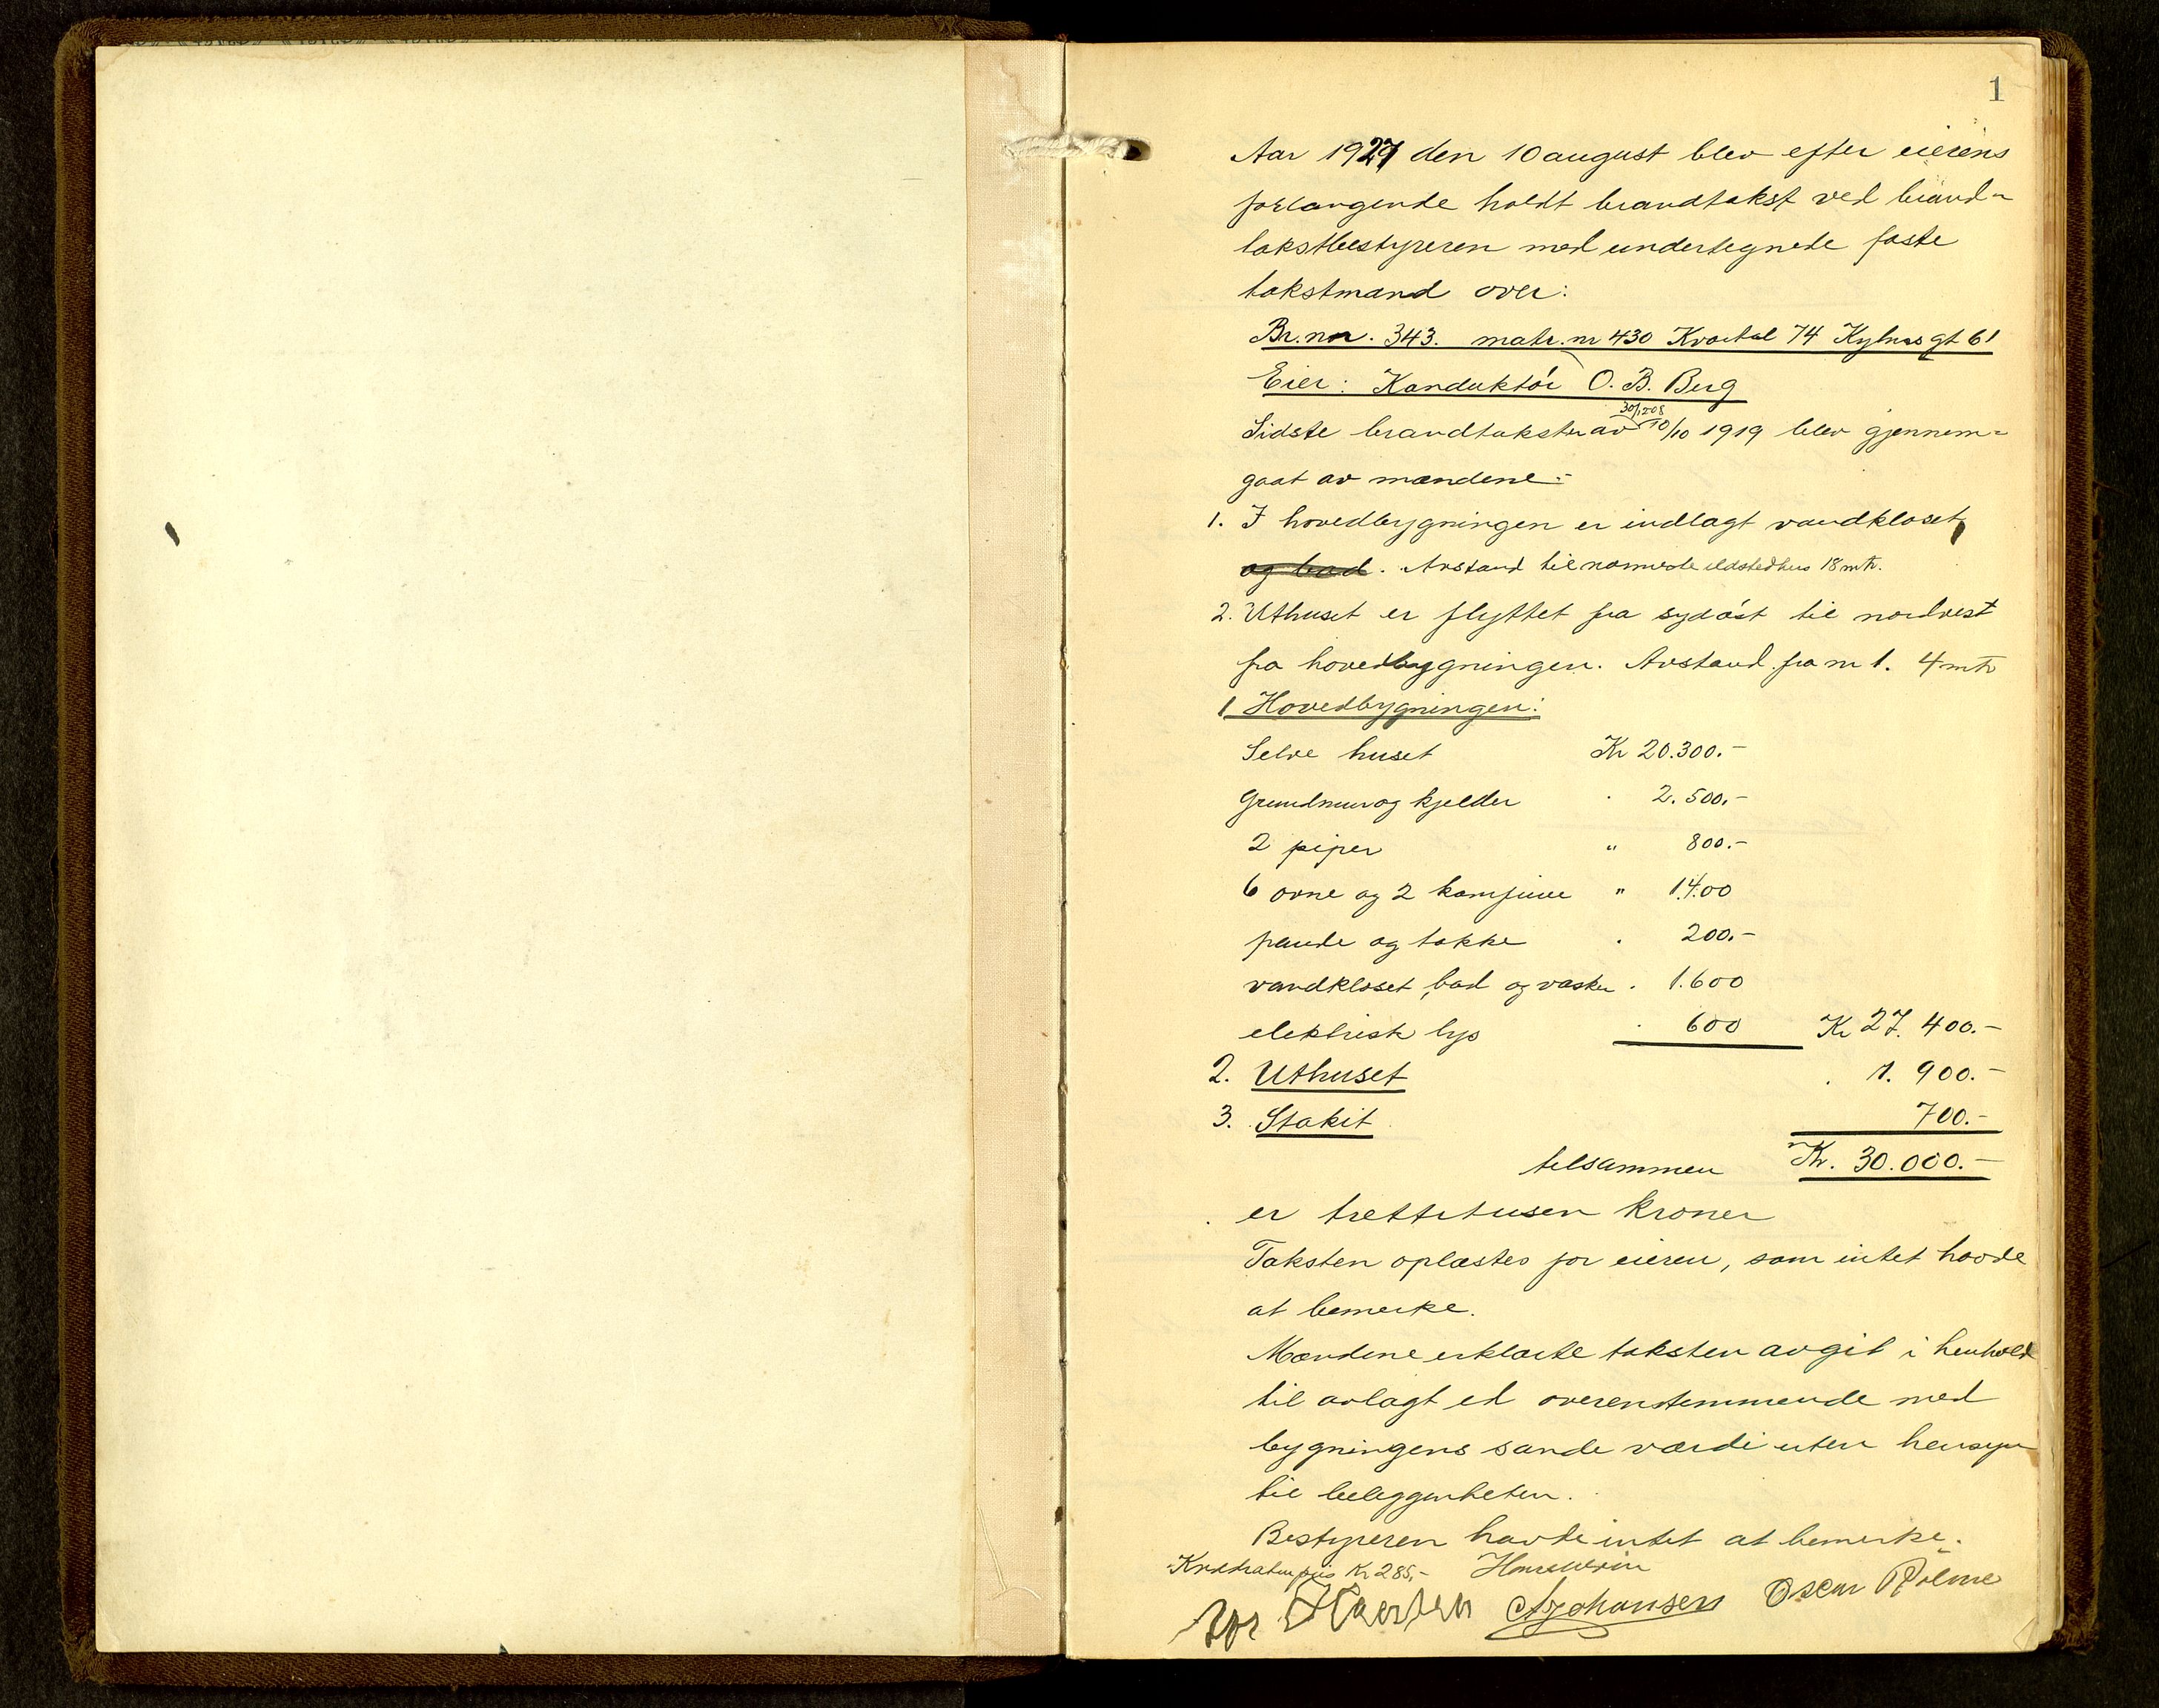 1
Aar 1927 den 10 august blev efter eierens
forlangende holdt brandtakst ved brand-
takstbestyreren med undertegnede faste
takstmænd over:
Br. nr. 343. matr. nr 430 Kvartal 74 gt 61
Eier: Konduktör O. B. Berg
Sidste brandtakster av 10/10 1919 blev gjennem-
gaat av mændene:-
1. I hovedbygningen er indlagt vandkloset,
og bad. Avstand til nærmeste ildstedhus 18 mtr.
2. Uthuset er flyttet fra sydöst til nordvest
fra hovedbygningen. Avstand fra nr 1. 4 mtr
1 Hovedbygningen:
Selve huset Kr 20.300.-
Grundmur og kjelder " 2.500.-
2 piper " 800.-
6 ovne og 2 komfuue " 1.400
pande og takke " 200.-
vandkloset, bad og vasker " 1.600
elektrisk lys " 600 Kr 27.400.-
2. Uthuset " 1.900.-
3. Stakit 700.-
tilsammen Kr. 30.000.-
er trettitusen kroner
Taksten oplæstes for eieren, som intet havde
at bemerke.
Mændene erklærte taksten avgit i henhold
til avlagt ed overenstemmende med
bygningens sande værdi uten hensyn
til beliggenheten.
Bestyreren havde intet at bemerke.
Kvadratmpris Kr 285,-
A Johansen Oscar Holme